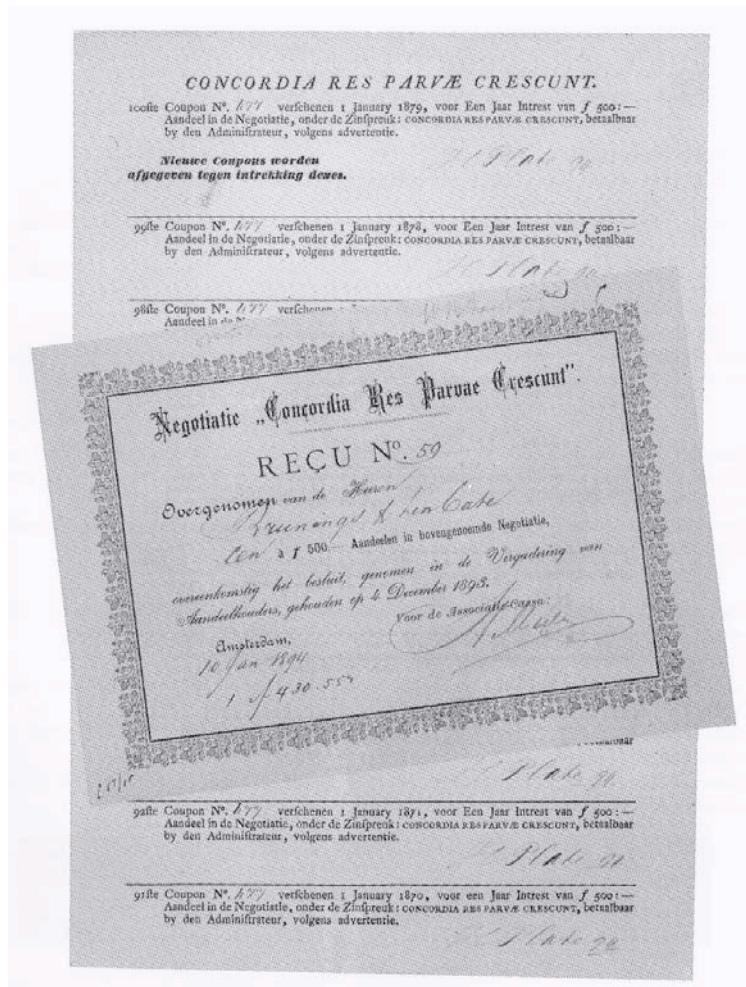 CONCORDIA RES PARVÆ CRESCUNT.
100ste Coupon Nº. 477 verschenen 1 January 1879, voor Een Jaar Intrest van ƒ 500:—
Aandeel in de Negotiatie, onder de Zinspreuk: CONCORDIA RES PARVÆ CRESCUNT, betaalbaar
by den Administrateur, volgens advertentie.
Nieuwe Coupons worden
afgegeven tegen intrekking dezes.
99ste Coupon Nº. 477 verschenen 1 January 1878, voor Een Jaar Intrest van ƒ 500:—
Aandeel in de Negotiatie, onder de Zinspreuk: CONCORDIA RES PARVÆ CRESCUNT, betaalbaar
by den Administrateur, volgens advertentie.
98ste Coupon Nº. 477 verschenen
Aandeel in de
Negotiatie „Concordia Res Parvae Crescunt”.
REÇU Nº. 59
Overgenomen van de Heeren
Brunings & ten Cate
een à ƒ 500.— Aandeelen in bovengenoemde Negotiatie,
overeenkomstig het besluit, genomen in de Vergadering van
Aandeelhouders, gehouden op 4 December 1893.
Voor de Associatie Cassa:
Amsterdam,
10 Jan 1894
1 ƒ 430.55
betaalbaar
92ste Coupon Nº. 477 verschenen 1 January 1871, voor Een Jaar Intrest van ƒ 500:—
Aandeel in de Negotiatie, onder de Zinspreuk: CONCORDIA RES PARVÆ CRESCUNT, betaalbaar
by den Administrateur, volgens advertentie.
91ste Coupon Nº. 477 verschenen 1 January 1870, voor een Jaar Intrest van ƒ 500:—
Aandeel in de Negotiatie, onder de Zinspreuk: CONCORDIA RES PARVÆ CRESCUNT, betaalbaar
by den Administrateur, volgens advertentie.